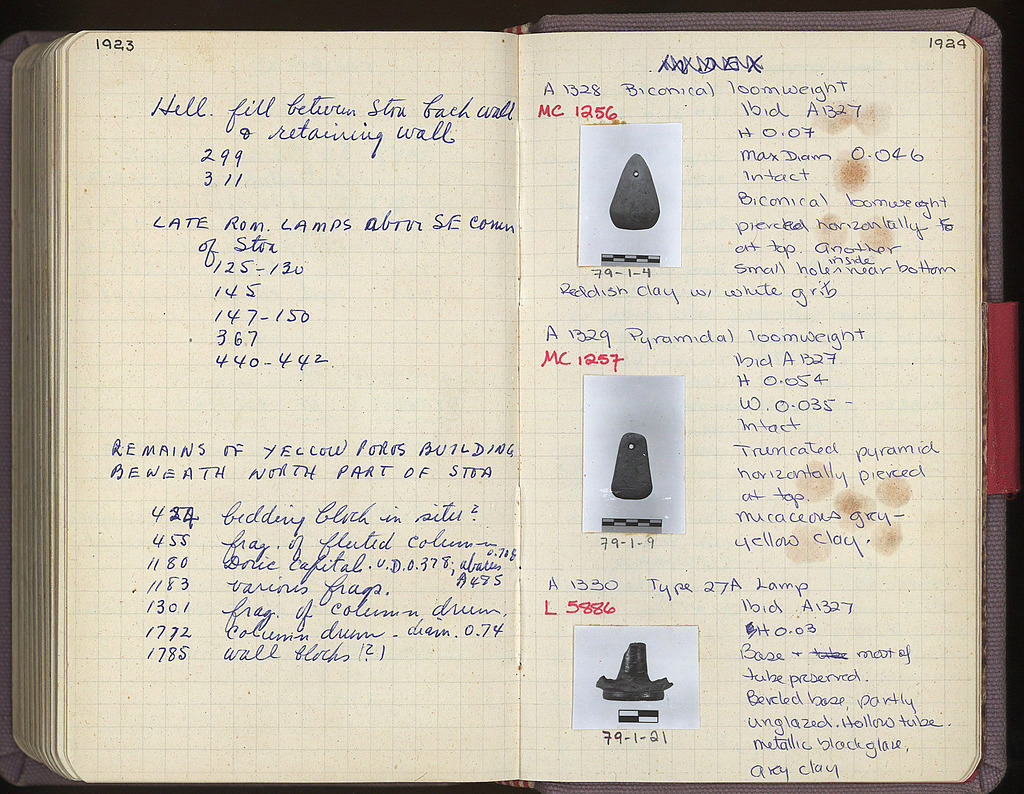 1923
Hell. fill between Stoa back wall
& retaining wall
299
311
LATE ROM. LAMPS above SE corner
of Stoa
125-130
145
147-150
367
440-442
REMAINS OF YELLOW POROS BUILDING
BENEATH NORTH PART OF STOA
424 bedding block in situ?
455 frag. of fluted column
1180 Doric capital. U.D. 0.378; abacus 0.708
A485
1183 various frags.
1301 frag. of column drum.
1772 column drum - diam. 0.74
1785 wall blocks (?)
1924
INDEX
A 1328 Biconical loomweight
MC 1256
Ibid A1327
H 0.07
max Diam 0.046
Intact
Biconical loomweight
pierced horizontally
at top. Another
small hole inside near bottom
79-1-4
Reddish clay w/ white grits
A 1329 Pyramidal loomweight
MC 1257
Ibid A1327
H 0.054
W. 0.035-
Intact
Truncated pyramid
horizontally pierced
at top.
micaceous grey-
yellow clay.
79-1-9
A 1330 Type 27A Lamp
L 5886
Ibid. A1327
H 0.03
Base + tube most of
tube preserved.
Beveled base, partly
unglazed. Hollow tube.
metallic black glaze,
grey clay
79-1-21